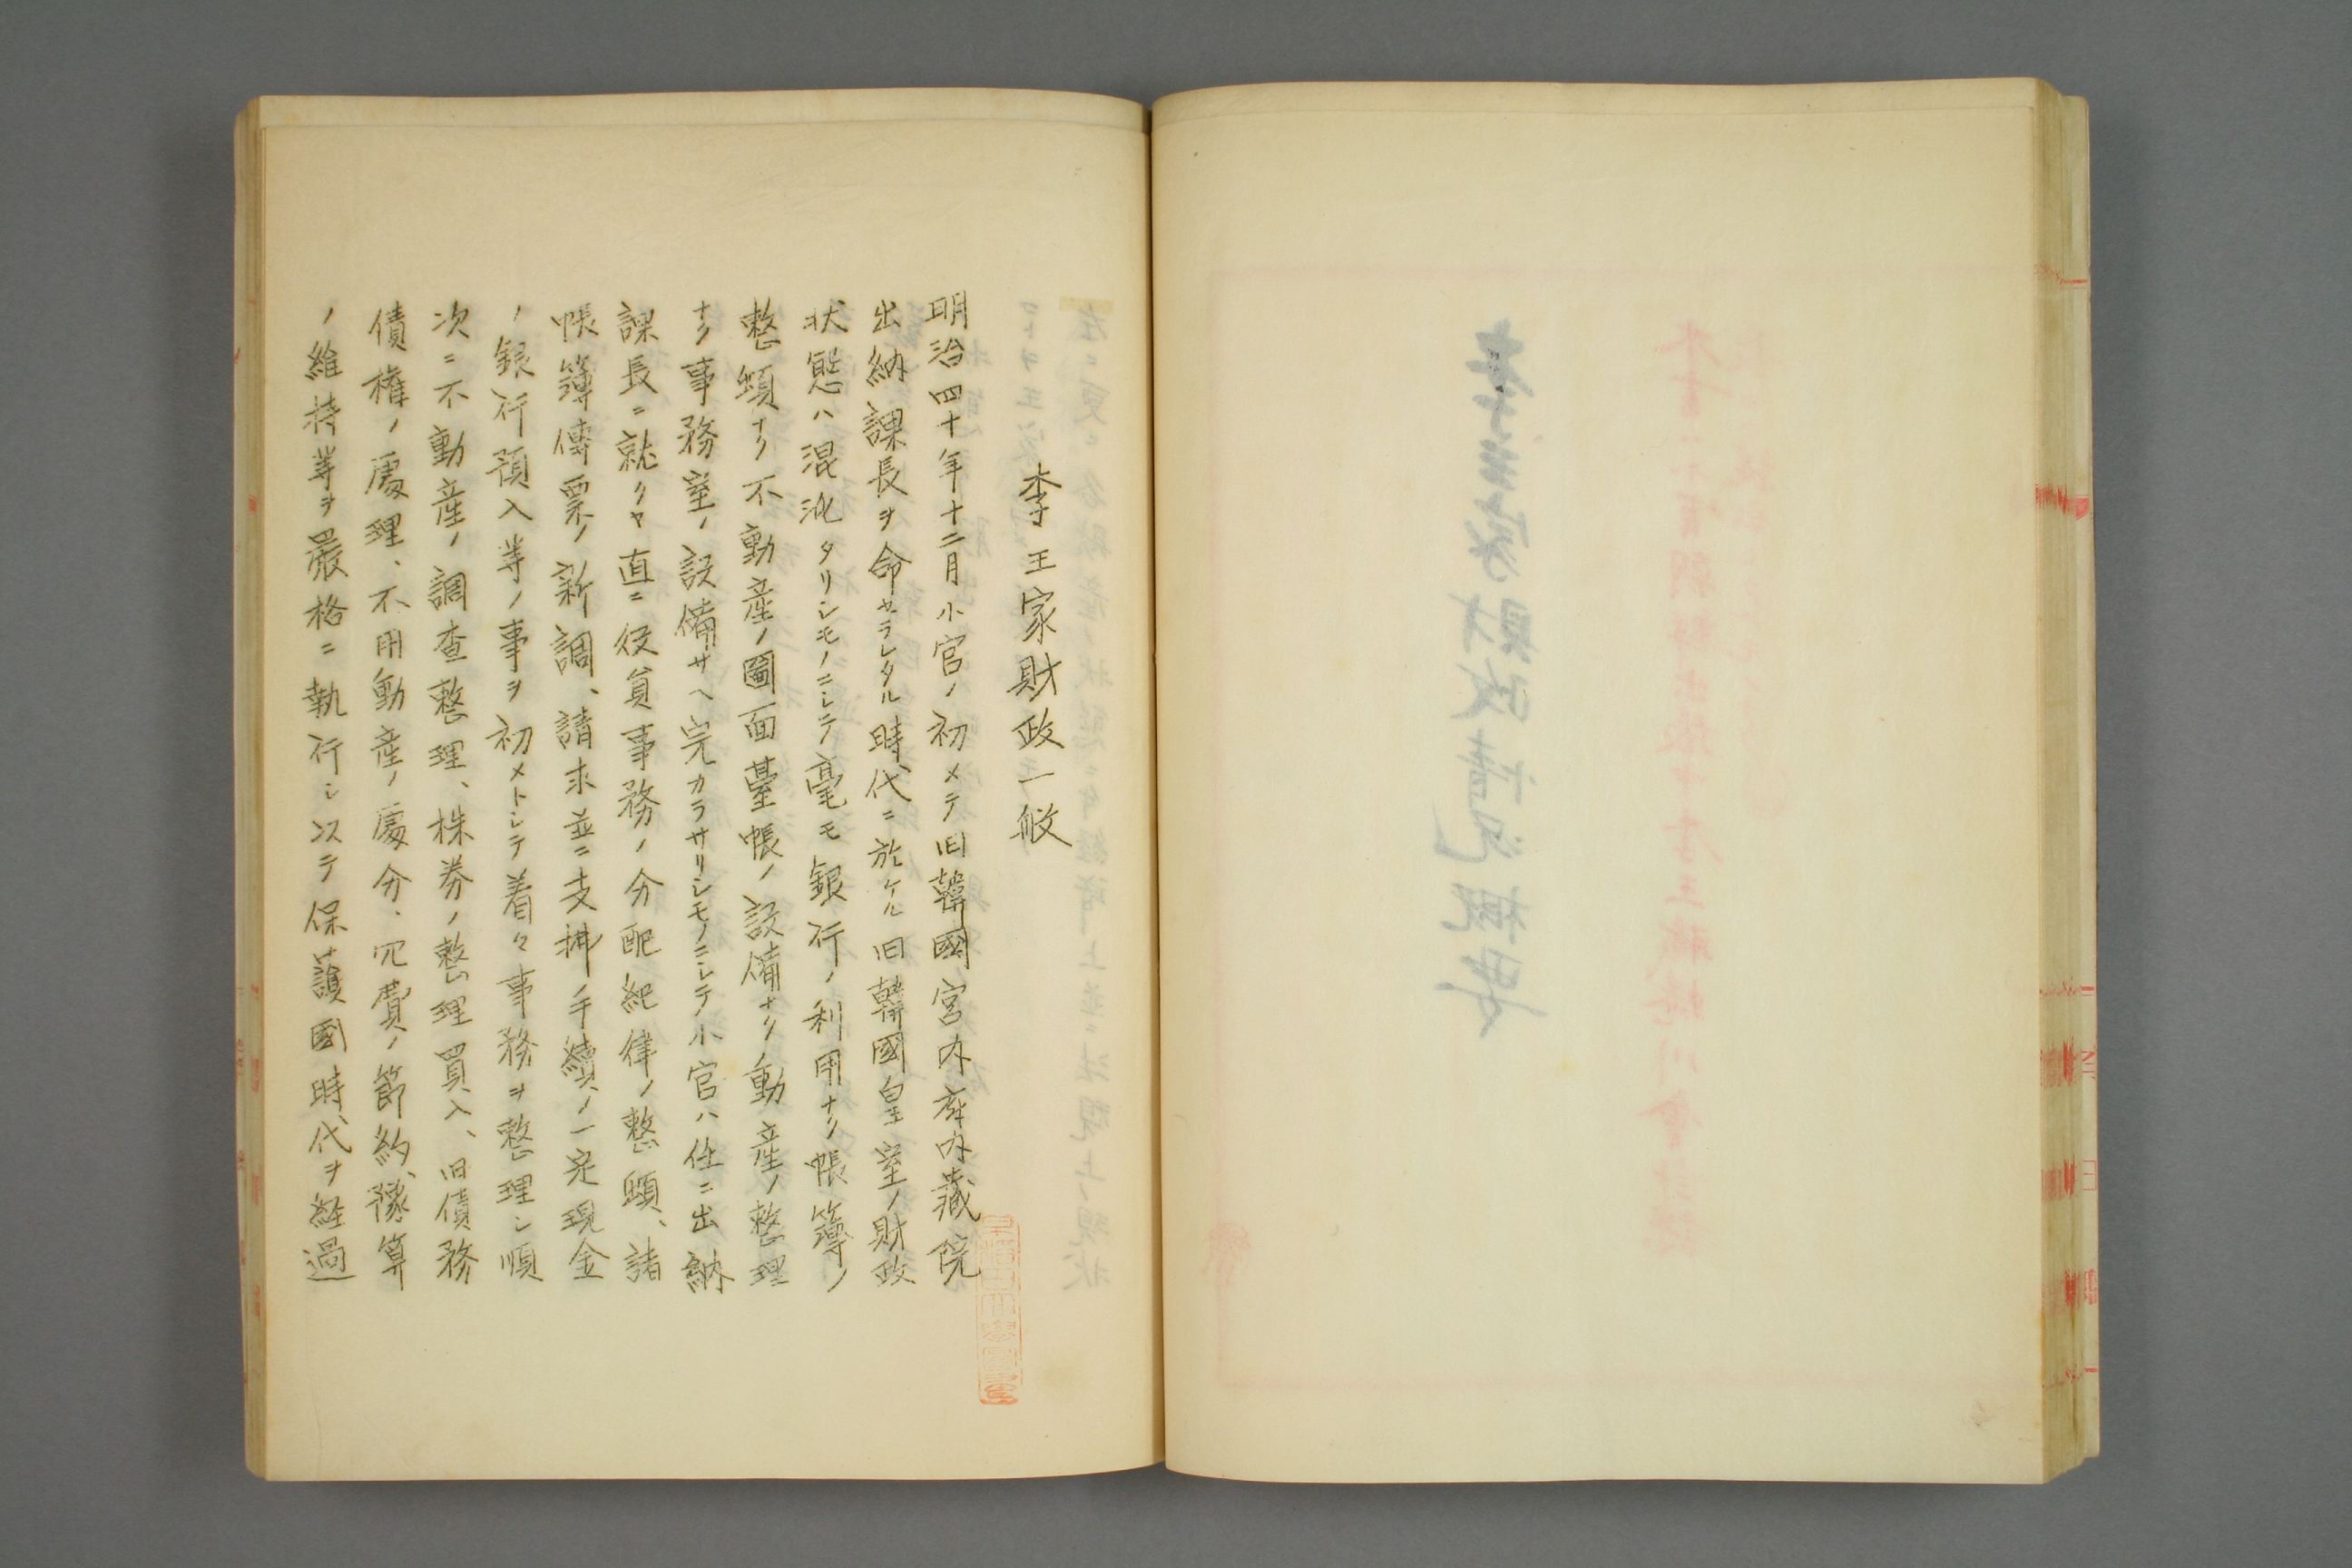 李王家財政一般
明治四十年十二月小官ノ初メテ旧韓國宮内府内藏院
出納課長ヲ命セラレタル時代ニ於ケル旧韓國皇室ノ財政
状態ハ混沌タリシモノニシテ毫モ銀行ノ利用ナク帳簿ノ
整頓ナク不動産ノ圖面臺帳ノ設備ナク動産ノ整理
ナク事務室ノ設備サヘ完カラサリシモノニシテ小官ハ仕ニ出納
課長ニ就クヤ直ニ役員事務ノ分配紀律ノ整頓、諸
帳簿傳票ノ新調、請求並ニ支拂ノ手續ノ一定現金
ノ銀行預入等ノ事ヲ初メトシテ着々事務ヲ整理シ順
次ニ不動産ノ調査整理、株券ノ整理買入、旧債務
債権ノ處理、不用動産ノ處分、冗費ノ節約、豫算
ノ維持等ヲ嚴格ニ執行シ以テ保護國時代ヲ経過